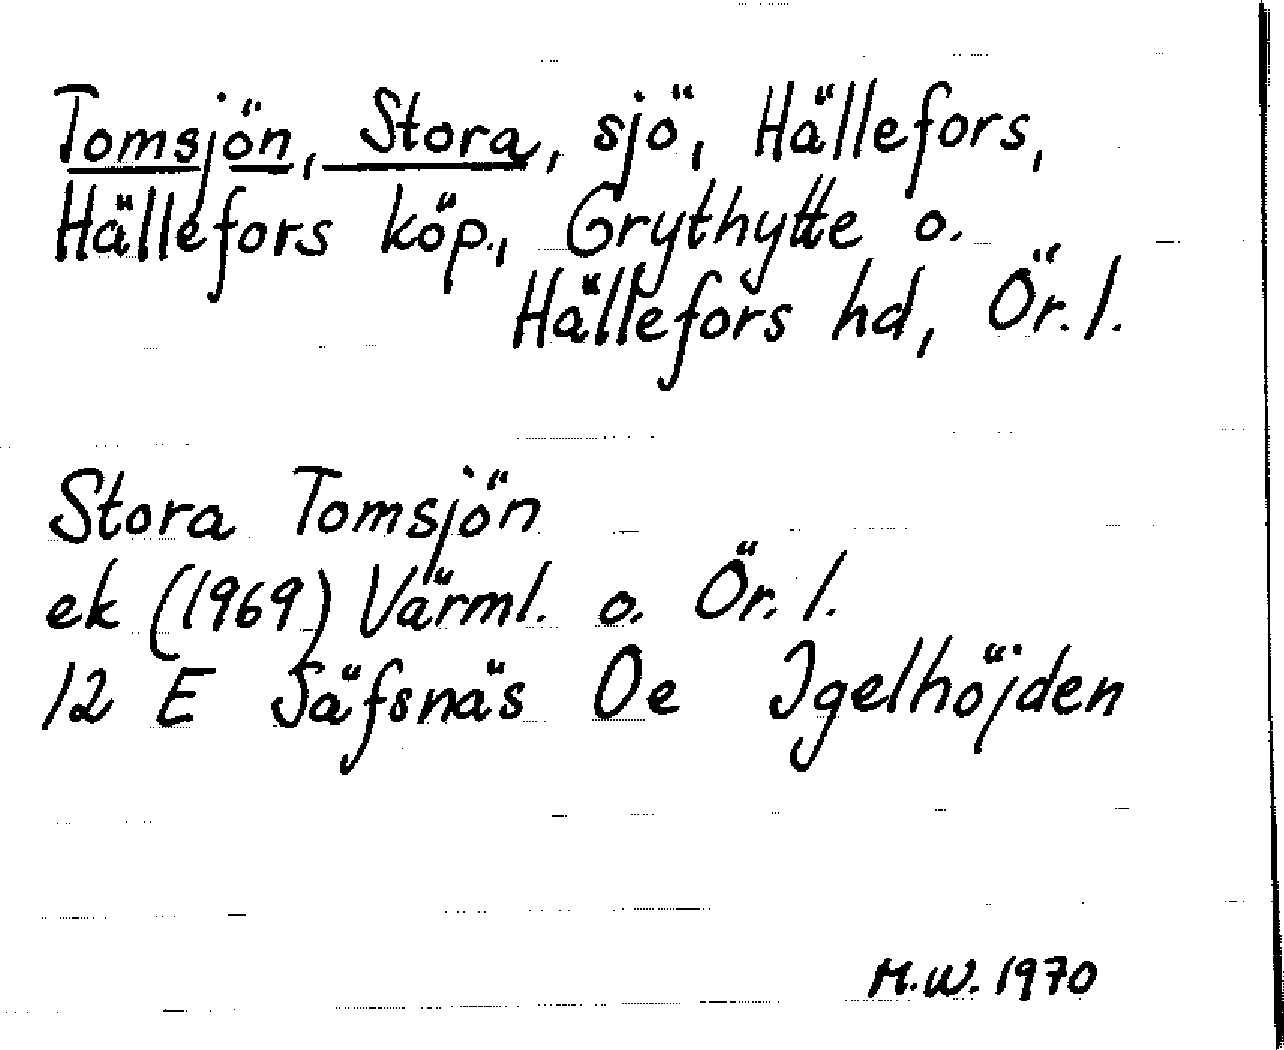 Tomsjön, Stora, sjö, Hällefors,
Hällefors köp., Grythytte o.
Hällefors hd, Ör. l.
Stora Tomsjön
ek (1969) Värml. o. Ör. l.
12 E Säfsnäs 0e Igelhöjden
M.W. 1970